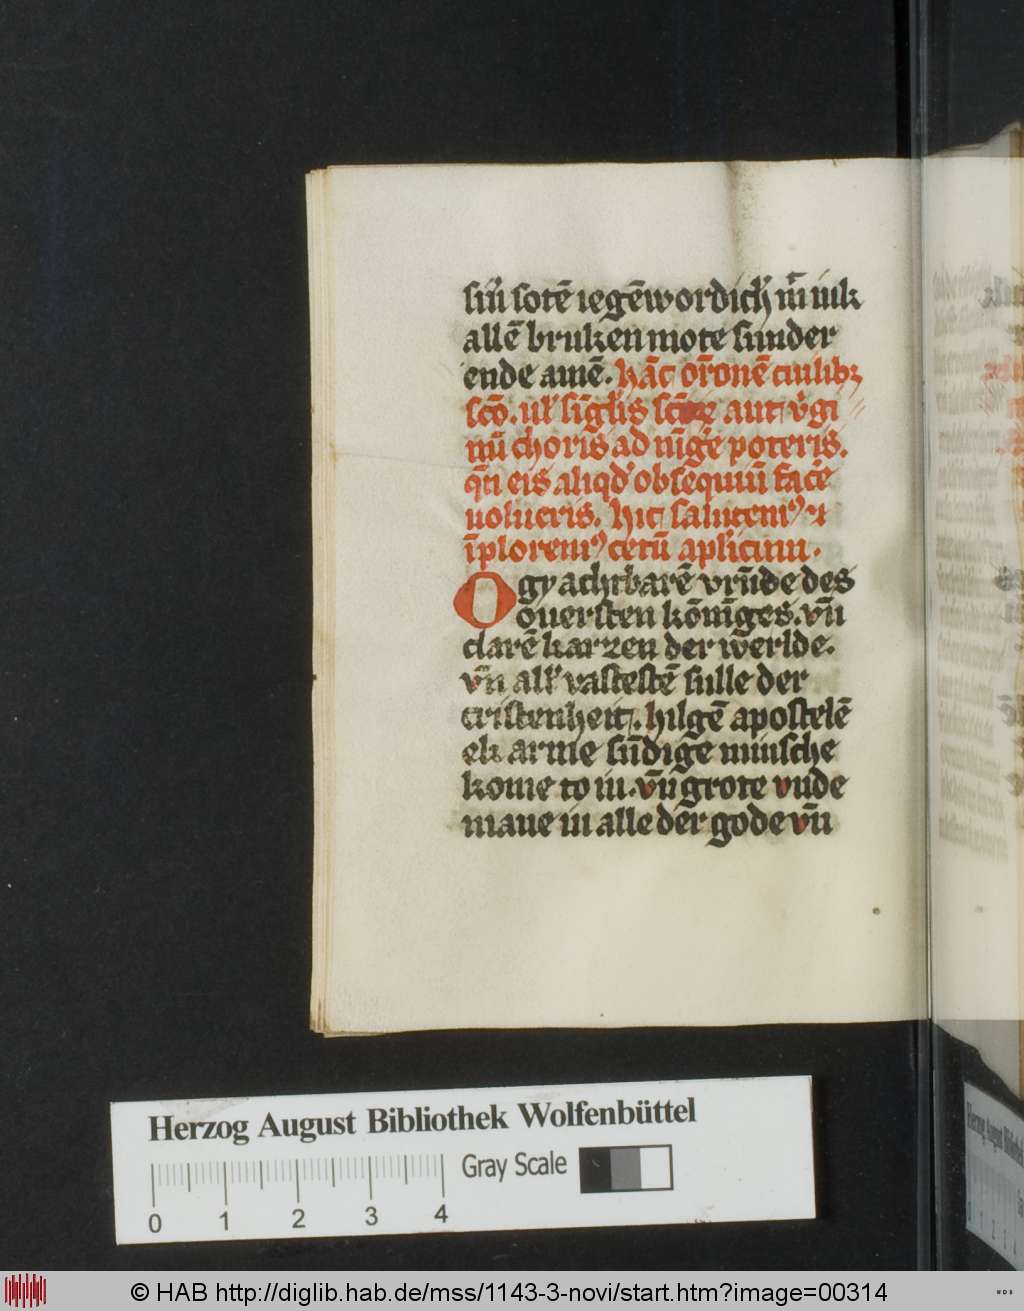 sin̄ sotē iegēwordich̓ m̄ iuk
allē bruken mote sunder
ende amē. hāc or̄onē cuilibꝫ
scō. ul̓ singl̓is aut v̓gi
nū choris ad iūge poteris.
qn̄ eis aliqd̓ obsequiū face̓
uolueris. hic salutemꝰ et
īploremꝰ cetū aplicum.
O gy achtbarē vrūde des
ouersten kōniges. vn̄
clarē karzen der werlde.
vn̄ all̓ vastestē sulle der
cristenheit. hilgē apostelē
ek arme sūdige minsche
kome to iu. vn̄ grote vnde
mane iu alle der gode vn̄
Herzog August Bibliothek Wolfenbüttel
Gray Scale
0 1 2 3 4
© HAB http://diglib.hab.de/mss/1143-3-novi/start.htm?image=00314